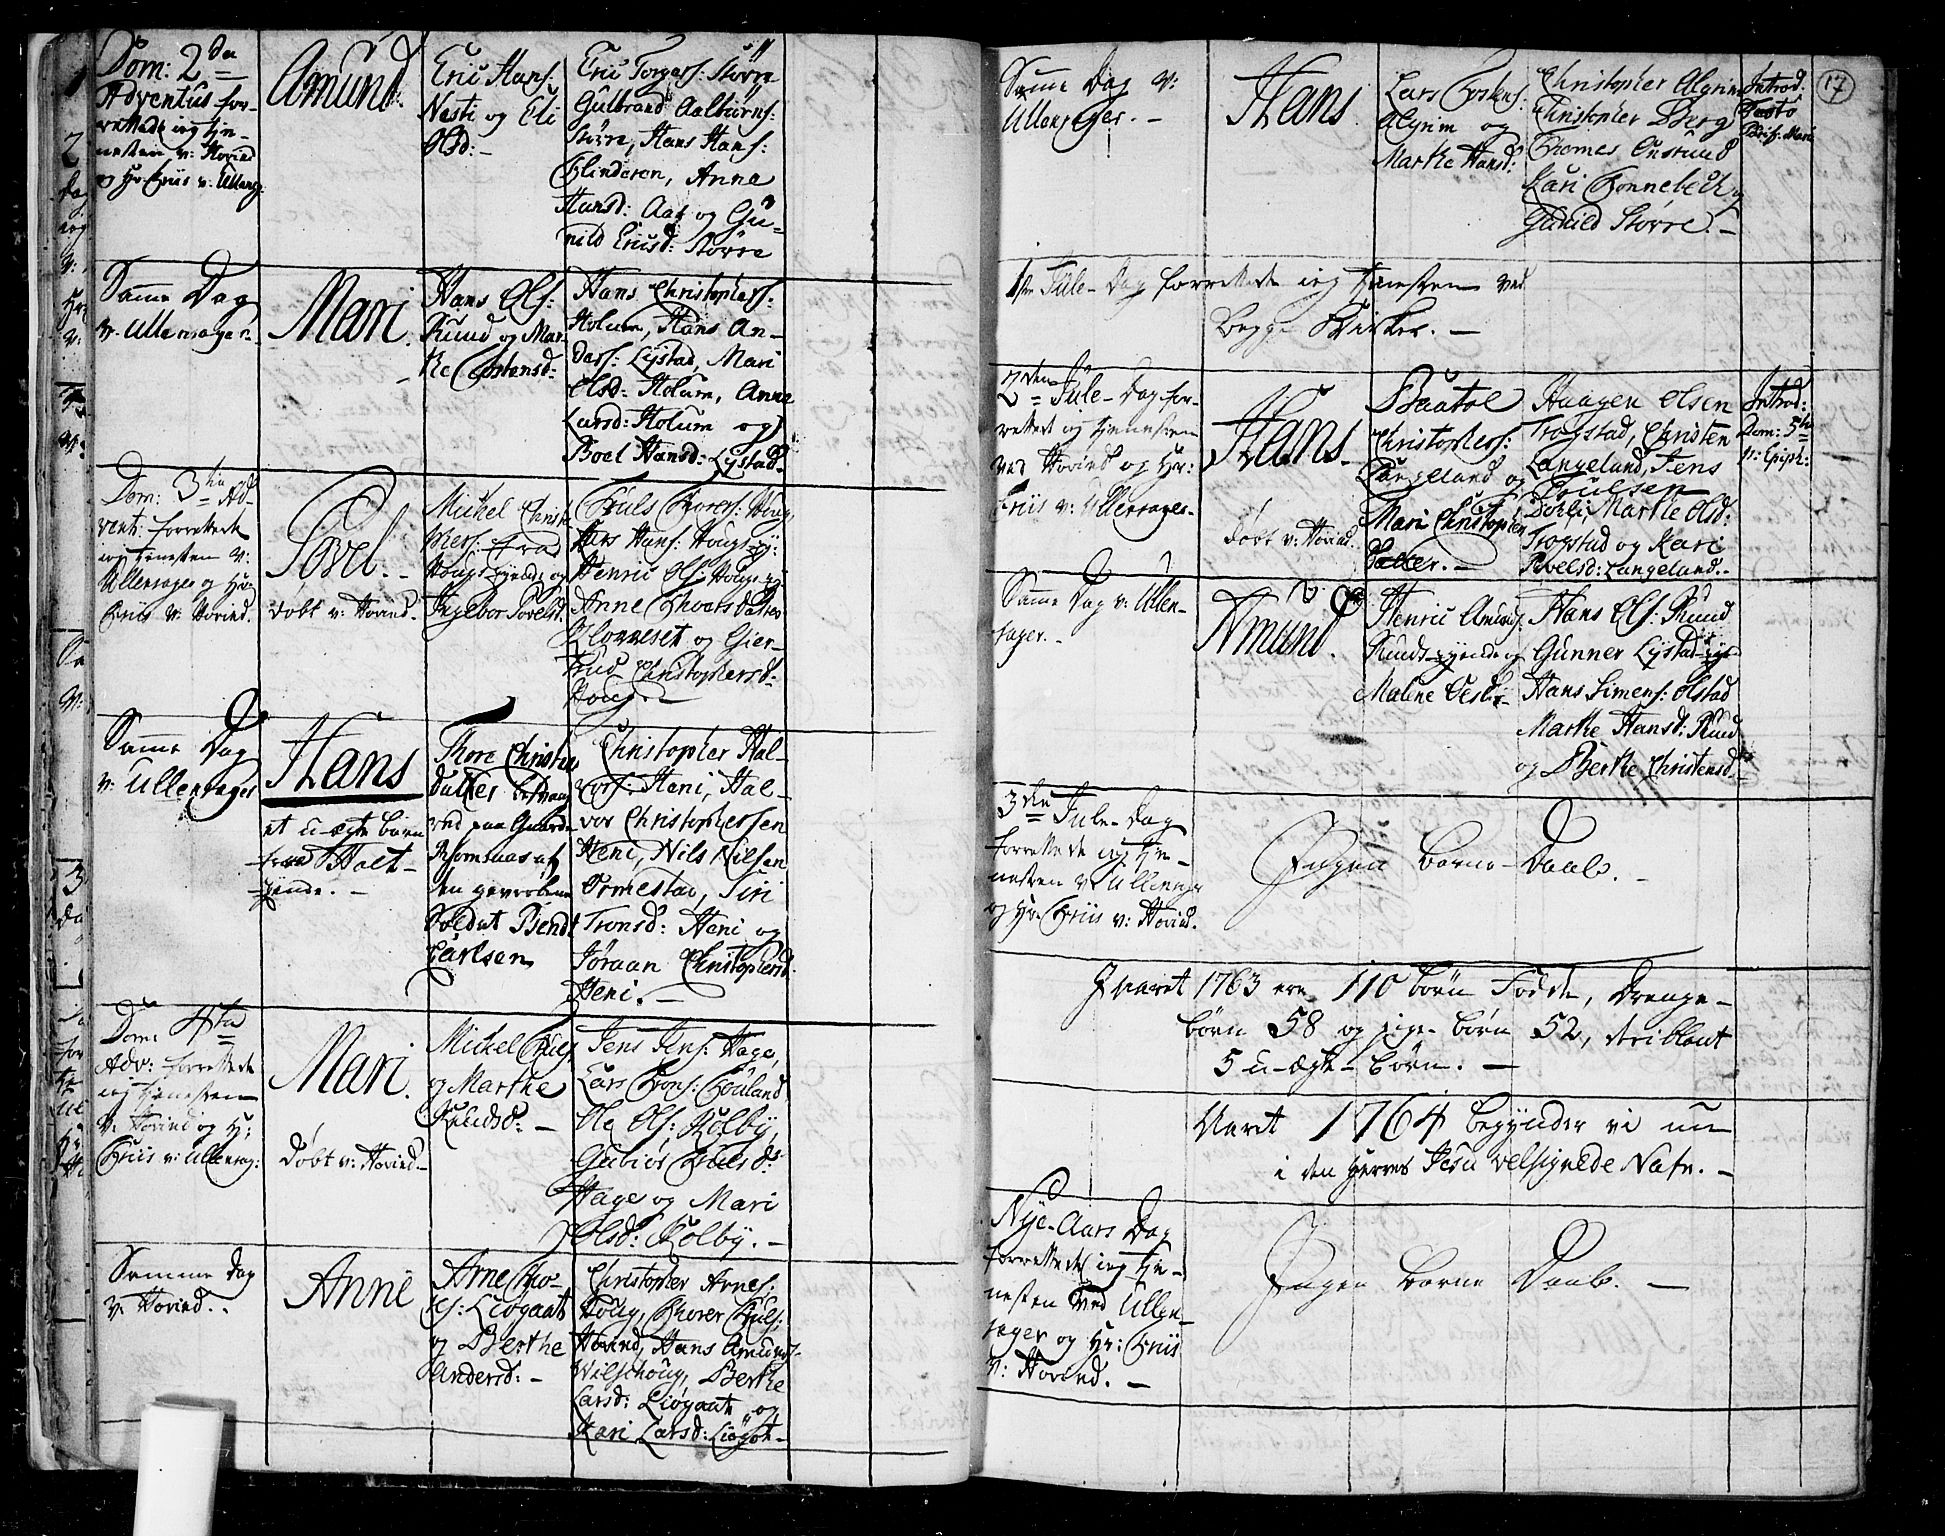 Dom: 2da
Adventus for-
rettede ieg tie-
nesten v: Hovind
og Hr. Friis v: Ullens:
Amund.
Eric Hans:
Nesti og Eli
Olsd: -
Eric Torgers: Storre
Gulbrand Aalbiørns:
Storre, Hans Hans:
Flinderen, Anne
Hansd: Aas og Gu-
nild Ericsd: Storre
Samme Dag
v. Ullensager.
Mari.
Hans Ols:
Ruud og Mar-
the Christensd:
Hans Christophers:
Holum, Hans An-
ders: Lystad, Mari
Olsd: Holum, Anne
Larsd: Holum og
Boel Hansd: Lystad.
Dom: 3tia Ad-
vent: forrettede
ieg tienesten v:
Ullensager og Hr.
Friis v. Hovind.
Povel.
døbt v: Hovind.
Michel
Houg-eyende og
Ingebor Povelsd.
Truls Thorers: Houg,
Lars Hans: Hougs-ey:
Henric Ols: Hougs-ey:
Anne
og Gier-
trud Christophersd:
Houg. -
Samme Dag
v: Ullensager
Hans
et u-ægte barn
fra Holt-
eyende. -
Thore Christens
datter besvang-
red paa Guard-
af
den gevorbne
Soldat Bendt
Carlsen
Christopher Hal-
vors: Heni, Hal-
vor Christophersen
Heni, Nils Nilsen
Ormestad, Siri
Tronsd: Heni og
Jøraan Christophersd:
Heni. -
Dom: 4ta
Adv: forrettede
ieg tienesten
v. Hovind og Hr:
Friis v: Ullensag:
Mari.
døbt v: Hovind -
Michel Truls:
og Marthe
Knudsd: -
Jens Jens: Hage,
Lars
Ole Ols: Kolby,
Gubiør Trulsd:
Hage og Mari
Olsd: Kolby. -
Samme Dag
v. Hovind.
Anne
Arne
Liøgaat
og Berthe
Andersd: -
Christopher Arnes:
Houg, Thorer Truls:
Hovind, Hans Amunds:
Wilschoug, Berthe
Larsd: Liøgaat og
Kari Larsd: Liøgot -
17
Samme Dag v:
Ullensager. -
Hans
Lars Torstens:
Algrim og
Marthe Hansd:
Christopher Algrim
Christopher Berg
Tromes
Kari Tonnebech og
Gunild Storre. -
Introd.
Festo
Purif: Mari
1ste Jule-Dag forrettede ieg tienesten ved
begge Kirker. -
2den Jule-Dag for-
rettede ieg tienesten
ved Hovind og Hr:
Friis v: Ullensager.
Hans.
døbt v: Hovind.
Baatol
Christophers:
Langeland og
Mari Christophers
datter. -
Haagen Olsen
Trogstad, Christen
Langeland, Jens
Poulsen
Dohli, Marthe Olsd:
Trogstad og Kari
Povelsd: Langeland.
Introd:
Dom: 5ta
p: Epiph:
Samme Dag v: Ullen-
sager. -
Amund.
Henric Amunds:
Ruuds-eyende og
Maline
Hans Ols: Ruud
Gunner Lystad-eye
Hans Simens: Olstad
Marthe Hansd: Ruud
og Berthe Christensd:
3die Jule-Dag
forrettede ieg tie-
nesten v. Ullensager
og Hr. Friis v: Hovind.
Ingen Barne-Daab. -
I Aaret 1763 ere 110 børn Fødde, Drenge-
børn 58 og pige-børn 52, deriblant
5 u-ægte-børn. -
Aaret 1764 begynder vi nu
i den Herres Jesu velsignede Nafn. -
Nye-Aars Dag
forrettede ieg tie-
nesten ved Ullen-
sager og Hr: Friis
v: Hovind. -
Ingen Barne Daab. -